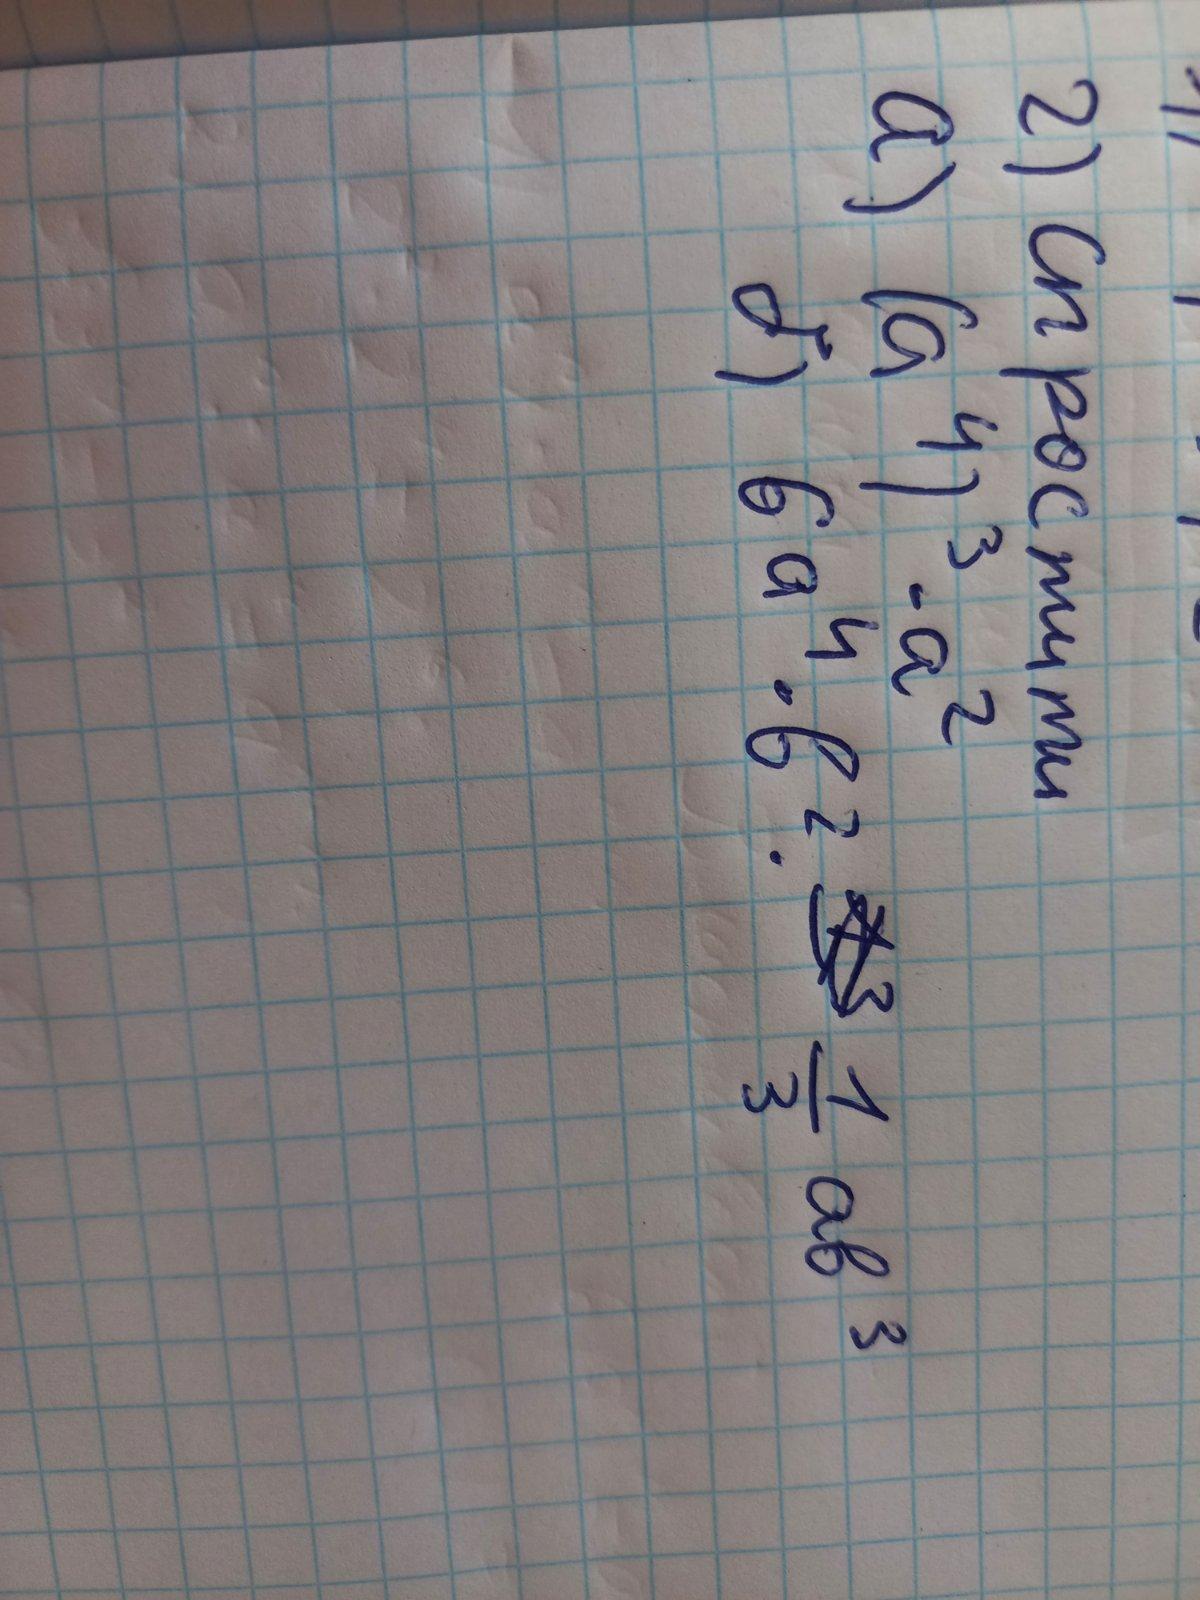 2) Спростити
а) (a⁴)³ · a²
б) 6a⁴ · b² · 1/3 ab³